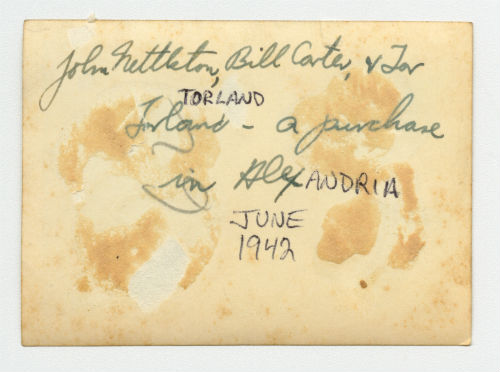 John Nettleton, Bill Carter, & Tor
TORLAND
Torland - a purchase
in AlexANDRIA
JUNE
1942